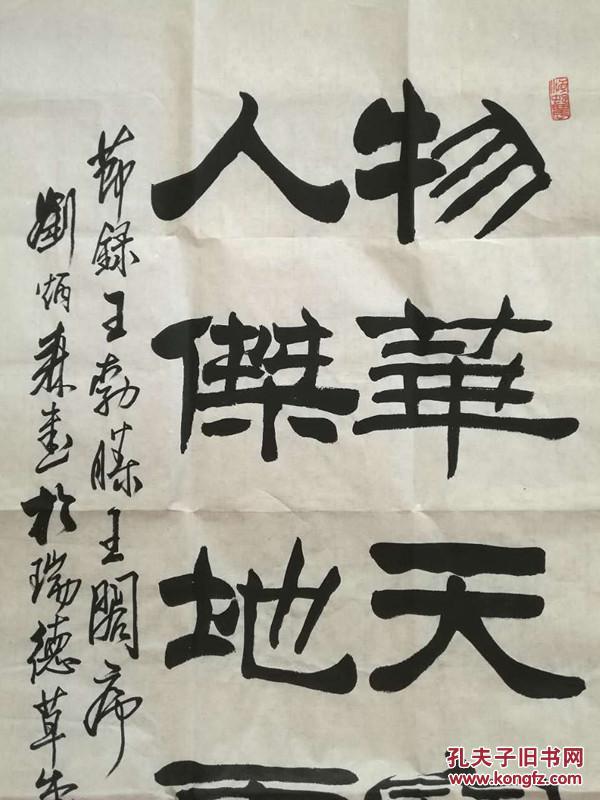 物華天
人傑地
節録王勃滕王閣序
劉炳森書於瑞德草
孔夫子旧书网
www.kongfz.com